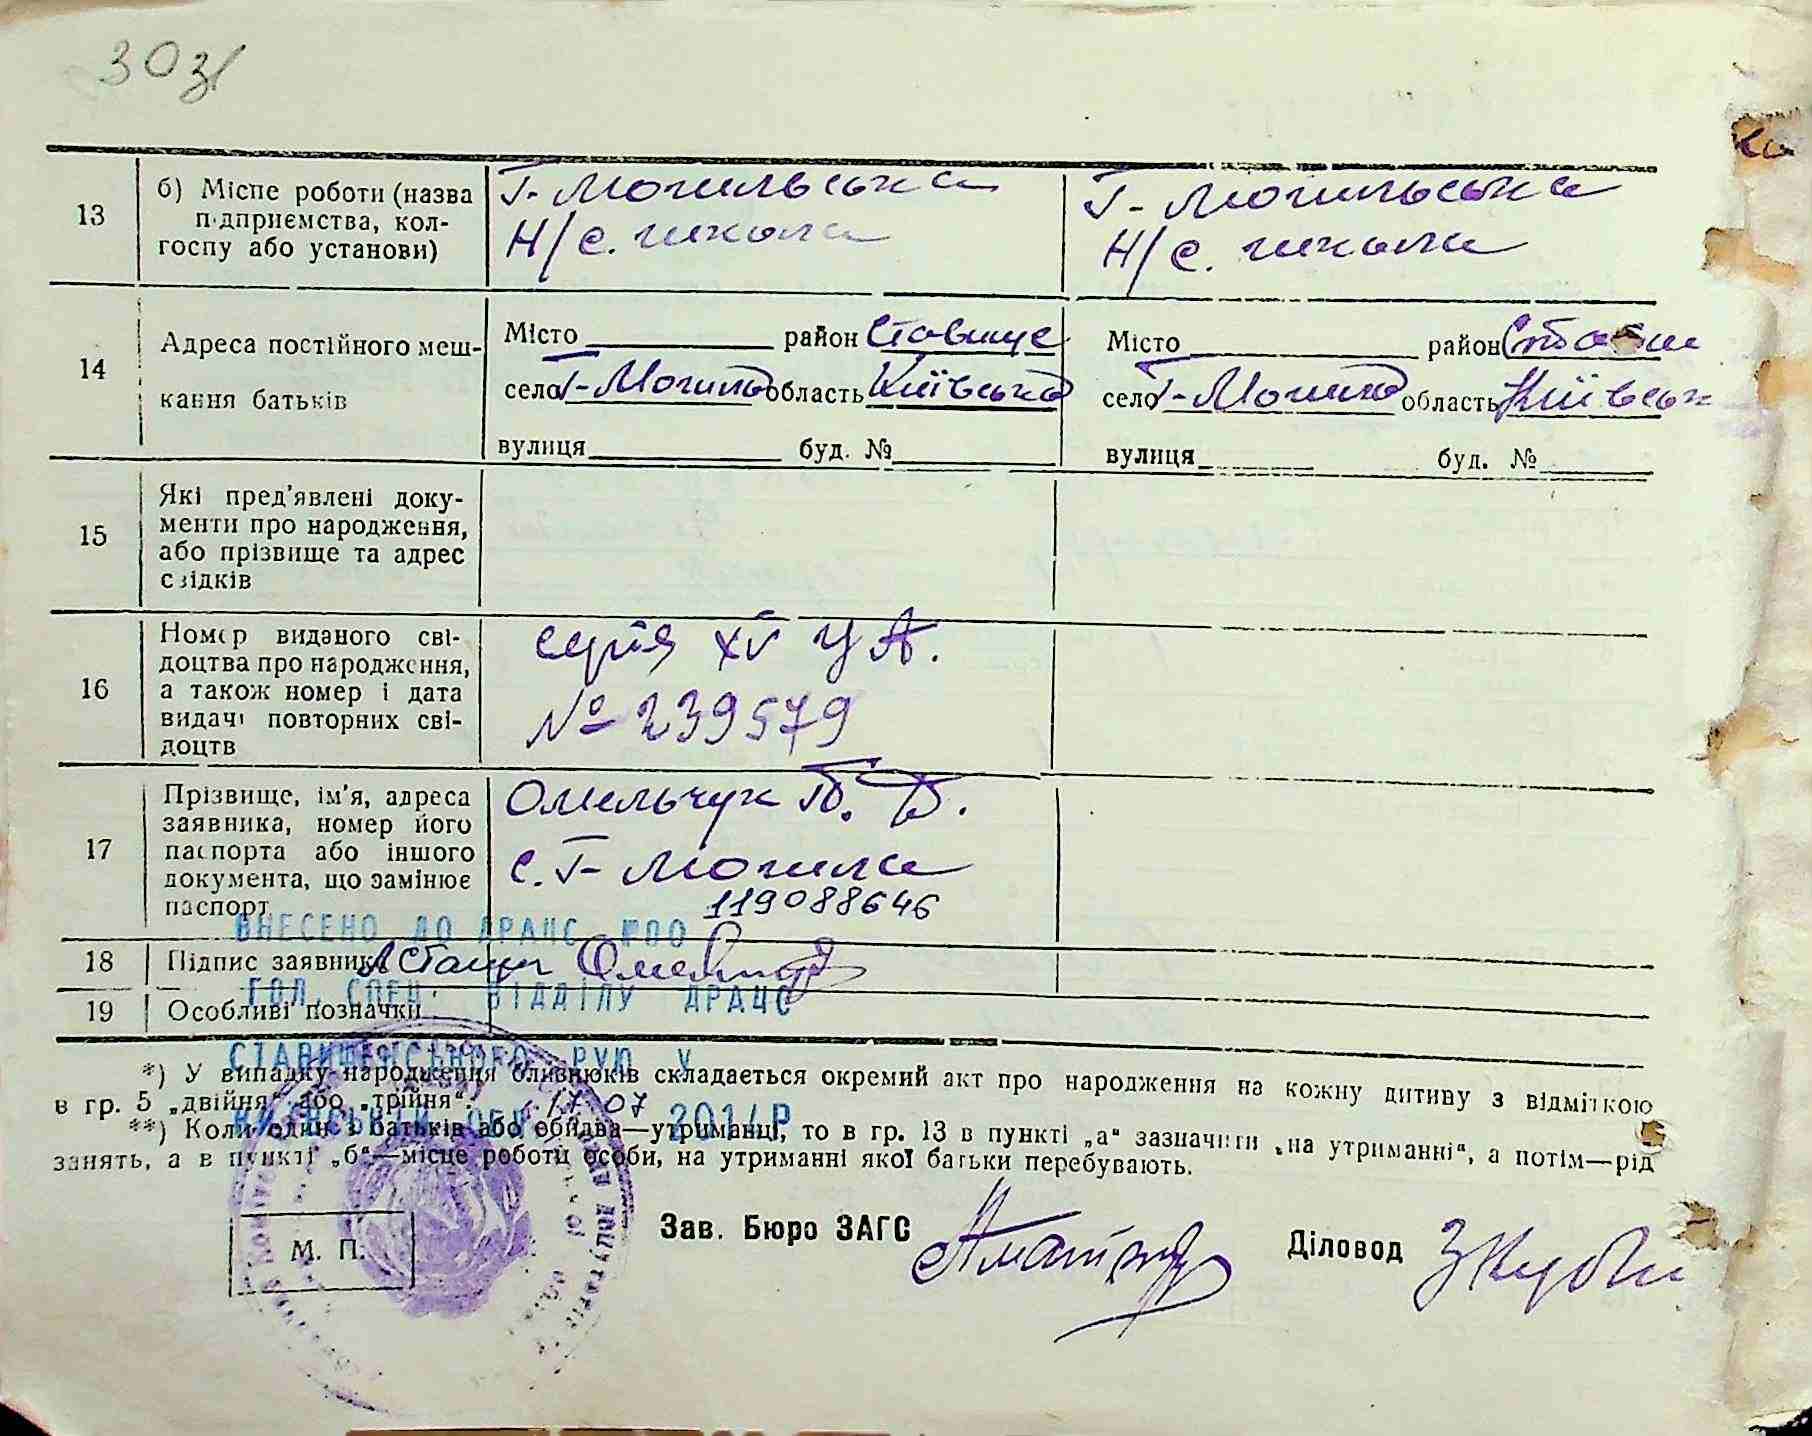 303
13
б) Місце роботи (назва
підприємства, кол-
госпу або установи)
Г-Могильська
Н/с. школа
Г-Могильська
Н/с. школа
14
Адреса постійного меш-
кання батьків
Місто район Ставище
село Г-Могила область Київська
вулиця буд. №
Місто район Стави
село Г-Могила область Київськ
вулиця буд. №
15
Які пред'явлені доку-
менти про народження,
або прізвище та адрес
свідків
16
Номер виданого сві-
доцтва про народження,
а також номер і дата
видачі повторних сві-
доцтв
серія XV УА.
№ 239579
17
Прізвище, ім'я, адреса
заявника, номер його
паспорта або іншого
документа, що замінює
паспорт
Омельчук
с. Г-Могила
119088646
ВНЕСЕНО ДО ДРАЦС
18
Підпис заявника
ГОЛ. СПЕЦ. ВІДДІЛУ ДРАЦС
19
Особливі позначки
СТАВИЩЕНСЬКОГО РУЮ У
*) У випадку народження близнюків складається окремий акт про народження на кожну дитину з відміткою
в гр. 5 „двійня“ або „трійня“.
17 07
КИЇВСЬКІЙ ОБЛ. 2017Р
**) Коли один з батьків або обидва—утриманці, то в гр. 13 в пункті „а“ зазначити „на утриманні“, а потім—рід
занять, а в пункті „б“—місце роботи особи, на утриманні якої батьки перебувають.
М. П.
Зав. Бюро ЗАГС
Діловод